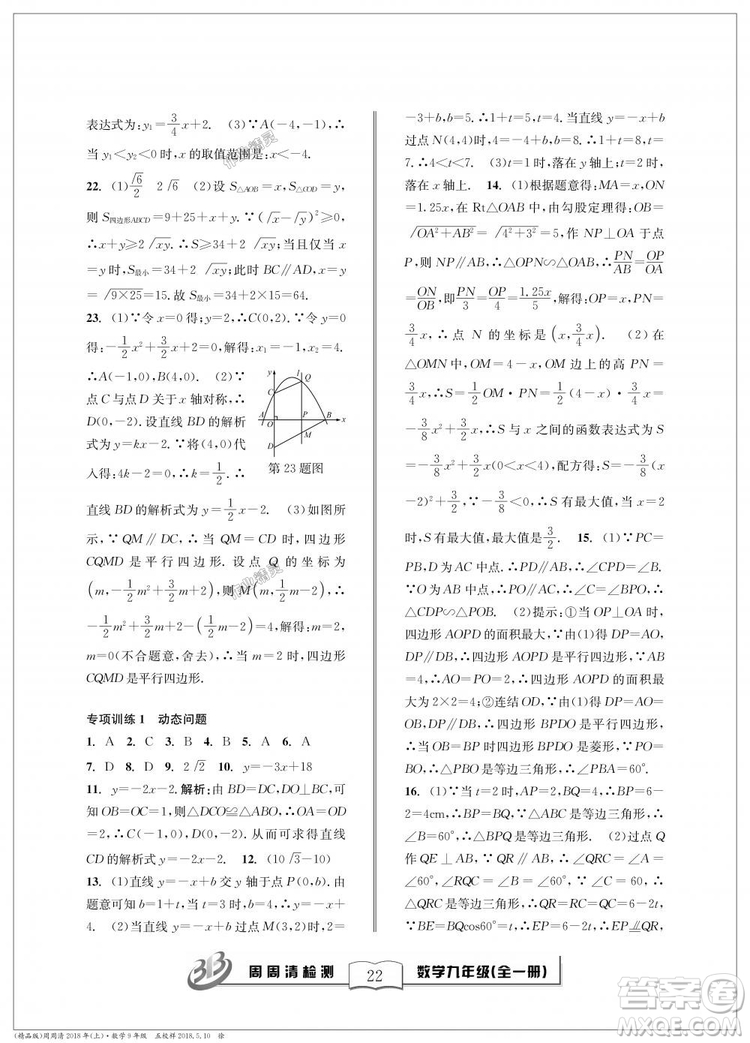 表达式为:y₁=3/4x+2. (3)∵A(-4,-1),∴
当 y₁<y₂<0时,x的取值范围是:x<-4.
22. (1)√6/2 2√6 (2)设 S△AOB=x,S△COD=y,
则 S四边形ABCD=9+25+x+y. ∵(√x-√y)²≥0,
∴x+y≥2√xy;∴S≥34+2√xy;当且仅当 x
=y 时,S最小=34+2√xy;此时 BC∥AD,∴√xy
=√9×25=15.故 S最小=34+2×15=64.
23. (1)∵令 x=0 得:y=2,∴C(0,2). ∵令 y=0
得:-1/2x²+3/2x+2=0,解得:x₁=-1,x₂=4.
∴A(-1,0),B(4,0). (2)∵
点C与点D关于x轴对称,∴
D(0,-2).设直线 BD 的解析
式为 y=kx-2. ∵将(4,0)代
入得:4k-2=0,∴k=1/2. ∴
y
l
C
Q
A
O
B
x
M
D
第 23 题图
直线 BD 的解析式为 y=1/2x-2. (3)如图所
示,∵QM∥DC,∴当 QM=CD 时,四边形
CQMD 是平行四边形.设点 Q 的坐标为
(m,-1/2m²+3/2m+2),则 M(m,1/2m-2),∴
-1/2m²+3/2m+2-(1/2m-2)=4,解得:m=2,
m=0(不合题意,舍去),∴当 m=2 时,四边形
CQMD 是平行四边形.
专项训练 1 动态问题
1. A 2. C 3. B 4. B 5. A 6. B
7. D 8. D 9. 2√2 10. y=-3x+18
11. y=-2x-2.解析:由 BD=DC,DO⊥BC,可
知 OB=OC=1,则△DCO≌△ABO,故有 OD
=OA=2,D(0,-2),C(-1,0).从而可求得直线
CD的解析式为 y=-2x-2. 12. (10√3-10)
13. (1)直线 y=-x+b 交 y 轴于点 P(0,b).由
题意可知 b=1+t.当 t=3 时,b=4,∴y=-x+
4. (2)当直线 y=-x+b 过点 M(3,2)时,2=
-3+b,b=5. ∴1+t=5,∴t=4.当直线 y=-x+b
过点 N(4,4)时,4=-4+b,b=8. ∴1+t=8,t
=7. ∴4<t<7. (3)t=1时,落在 y 轴上;t=2时,落
在 x 轴上. 14. (1)根据题意得:MA=x,ON
=1.25x,在 Rt△OAB 中,由勾股定理得:OB=
√OA²+AB²=√4²+3²=5.作 NP⊥OA 于点
P,则 NP∥AB,∴△OPN∽△OAB,∴PN/AB=OP/OA
=ON/OB,即PN/3=OP/4=1.25x/5,解得:OP=x,PN=
3/4x,∴点 N 的坐标是(x,3/4x). (2)在
△OMN 中,OM=4-x,OM 边上的高 PN=
3/4x,∴S=1/2OM·PN=1/2(4-x)·3/4x=-
3/8x²+3/2x,∴S 与 x 之间的函数表达式为 S
=-3/8x²+3/2x(0<x<4),配方得:S=-3/8(x-
2)²+3/2. ∵-3/8<0,∴S 有最大值.当 x=2
时,S 有最大值,最大值是3/2. 15. (1)∵PC=
PB,D为AC中点,∴PD∥AB,∴∠CPD=∠B.
∵PO=OB,∴∠B=∠OPB,∴∠C=∠OPB,∴
△CDP∽△POB. (2)提示:①当 OP⊥AB 时,四
边形 AOPD 的面积最大,∵由(1)得 PD∥AB,
∵DP=PO=AO,∴四边形 AOPD是平行四边
形,∵OP⊥OA,∴四边形 AOPD 的面积最大
为 2×2=4;②连结 OD,∵PD∥AB,DP=AO
=OB,∴四边形 BPDO 是平行四边形,∴当
OD=BO 时,四边形 BPDO 是菱形,∵PD=AO
=DO,∴△PDO是等边三角形,∴∠PBA=60°.
16. (1)∵当 x=2 时,AP=2,BQ=4,∴PB=6
-2=4cm,∴BP=BQ. ∵△ABC 是等边三角形,
∴∠B=60°,∴△BPQ 是等边三角形. (2)过点 Q
作 QE⊥AB,∵QR∥BA,∴∠QRC=∠A
=60°,∠RQC=∠B=60°,又∵∠C=60°,∴
△QRC 是等边三角形,∴QR=RC=QC=6-2x,
∵BE=BQcos60°=x,∴EP=6-2x,∴EP⫫QR,
周周清检测 22 数学九年级(全一册)
(精品版)周周清 2018 年(上)·数学 9 年级 五校样 2018.5.10 徐
答案圈